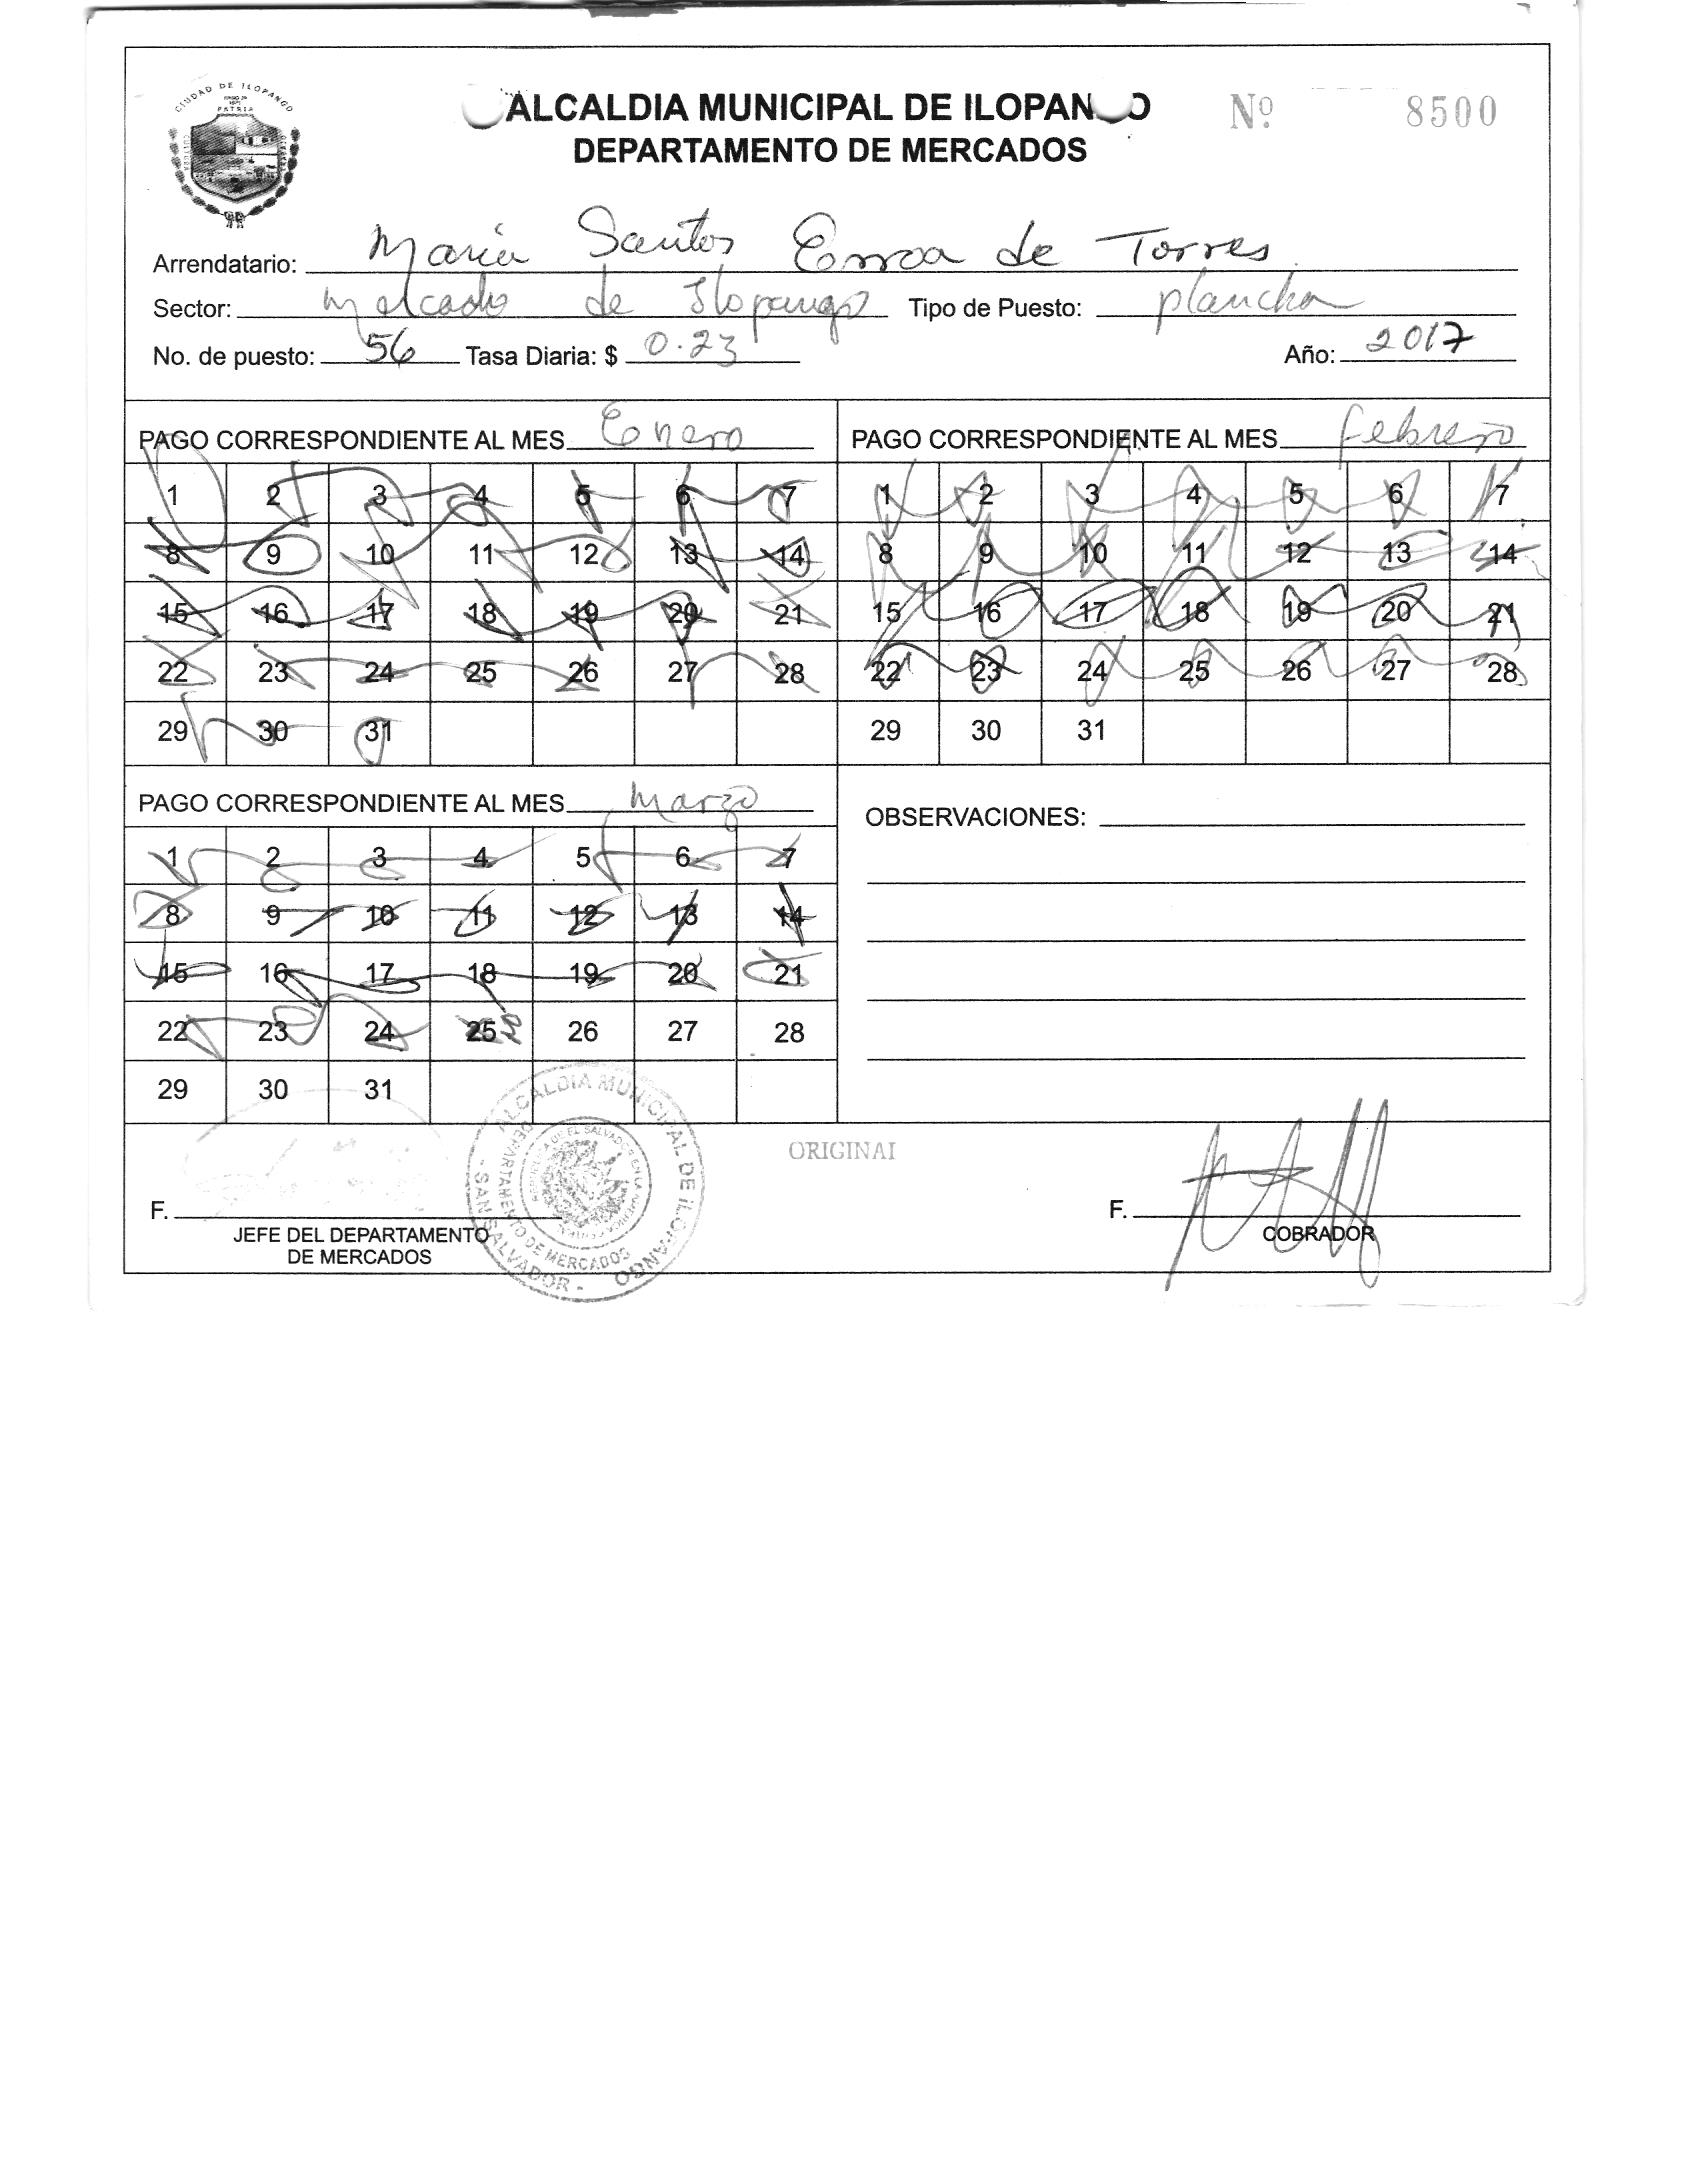 CIUDAD DE ILOPANGO
PATRIA
ALCALDIA MUNICIPAL DE ILOPANGO
Nº 8500
DEPARTAMENTO DE MERCADOS
Arrendatario: Maria Santos de Torres
Sector: Mercado de Ilopango Tipo de Puesto: plancha
No. de puesto: 56 Tasa Diaria: $ 0.23 Año: 2017
PAGO CORRESPONDIENTE AL MES Enero
1 2 3 4 5 6 7
8 9 10 11 12 13 14
15 16 17 18 19 20 21
22 23 24 25 26 27 28
29 30 31
PAGO CORRESPONDIENTE AL MES febrero
1 2 3 4 5 6 7
8 9 10 11 12 13 14
15 16 17 18 19 20 21
22 23 24 25 26 27 28
29 30 31
PAGO CORRESPONDIENTE AL MES Marzo
1 2 3 4 5 6 7
8 9 10 11 12 13 14
15 16 17 18 19 20 21
22 23 24 25 26 27 28
29 30 31
OBSERVACIONES:
ORIGINAL
F.
JEFE DEL DEPARTAMENTO
DE MERCADOS
ALCALDIA MUNICIPAL DE ILOPANGO
DEPARTAMENTO DE MERCADOS
REPUBLICA DE EL SALVADOR EN LA AMERICA CENTRAL
- SAN SALVADOR -
F.
COBRADOR